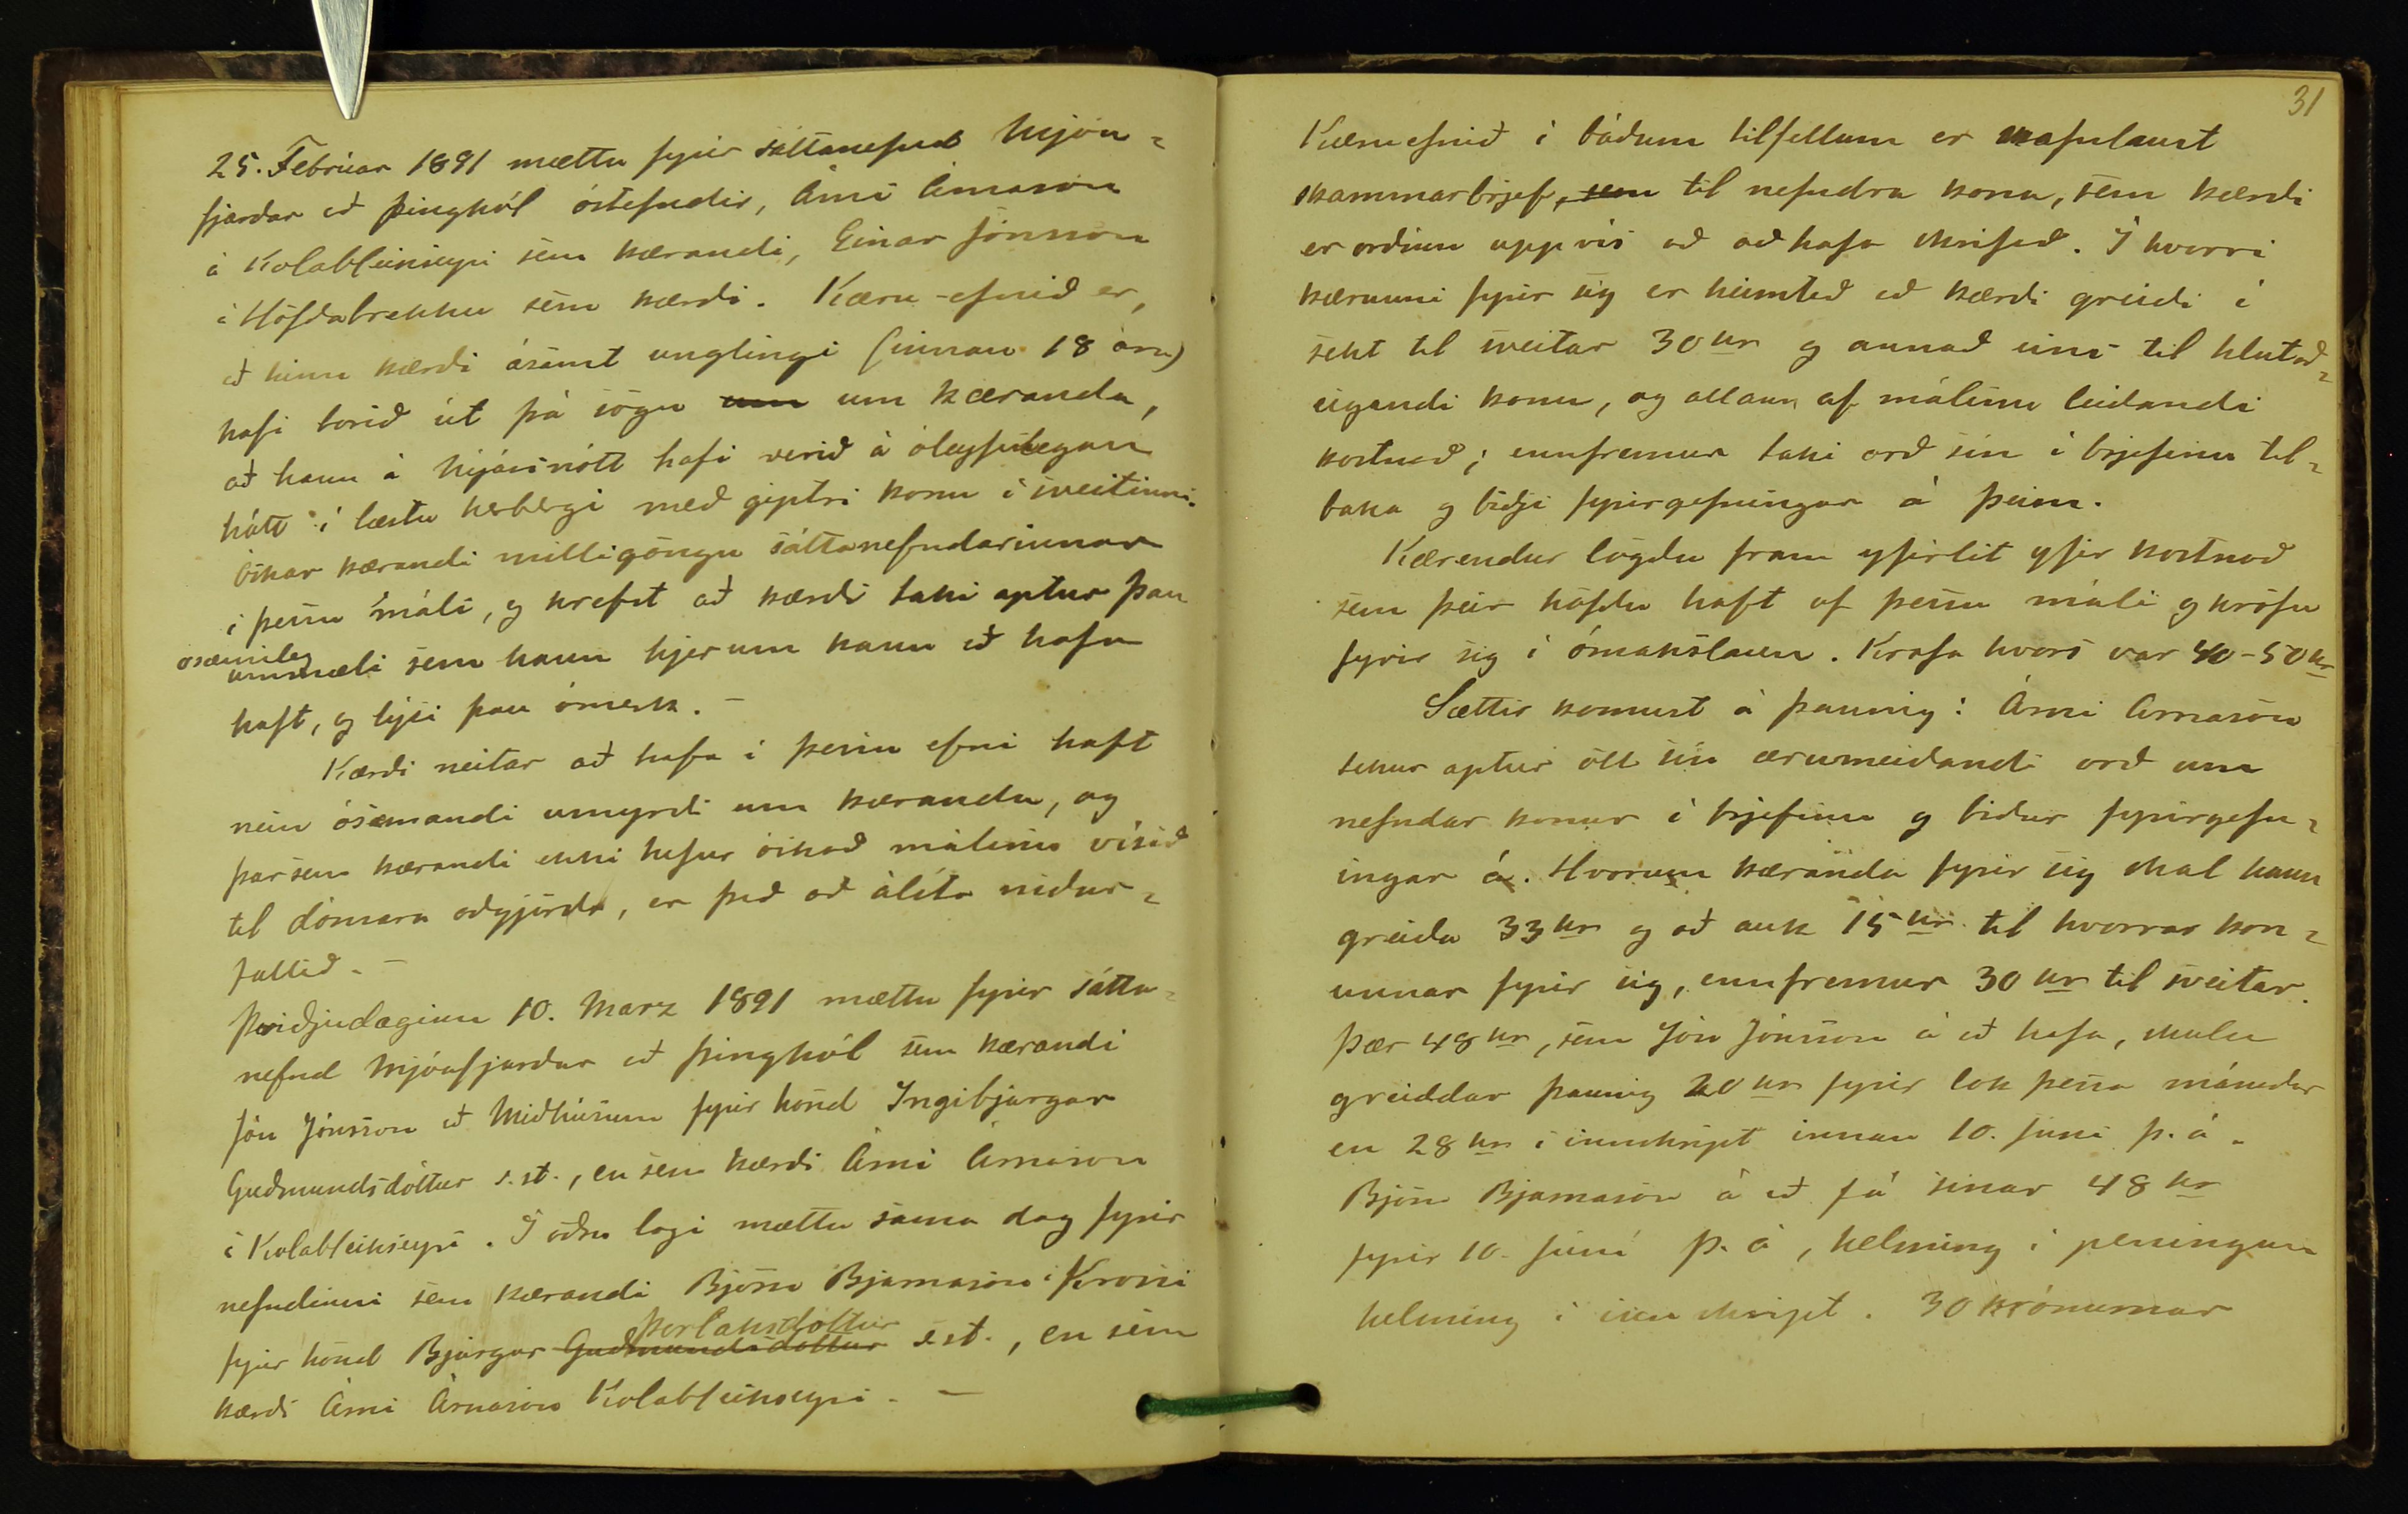 25. Febrúar 1891 mættu fyrir sáttanefnd Mjóa-
fjarðar að þinghól óstefndir, Árni Árnason
á Kolableikseyri sem kærandi, Einar Jónsson
í Höfðabrekku sem kærði. Kæru-efnið er,
að hinn kærði ásamt unglingi (innan 18 ára)
hafi borið út þá sögu um um kæranda,
að hann á Nýársnótt hafi verið á óleyfilegan
hátt í læstu herbergi með giptri konu í sveitinni.
Óskar kærandi milligöngu sáttanefndarinnar
í þessu máli, og krefst að kærði taki aptur þau
ósæmileg
ummæli sem hann hjer um kann að hafa
haft, og lýsi þau ómerk. -
Kærði neitar að hafa í þessu efni haft
nein ósæmandi umyrði um kæranda, og
þar sem kærandi ekki hefur óskað málinu vísað
til dómara aðgjörða, er það að álíta niður-
fallið. -
Þriðjudaginn 10. Marz 1891 mættu fyrir sátta-
nefnd Mjóafjarðar að þinghól sem kærandi
Jón Jónsson að Miðhúsum fyrir hönd Ingibjargar
Guðmundsdóttur s.st., en sem kærði Árni Árnason
í Kolableikseyri. Í öðru lagi mættu sama dag fyrir
nefndinni sem kærandi Björn Bjarnason í Krossi
Þorláksdóttur
fyrir hönd Bjargar Guðmundsdóttur s.st., en sem
kærði Árni Árnason Kolableikseyri. -
31
Kæruefnið í báðum tilfellum er nafnlaust
skammarbrjef, sem til nefndra kona, sem kærði
er orðinn uppvís að að hafa skrifað. Í hvorri
kærunni fyrir sig er heimtað að kærði greiði í
sekt til sveitar 30 kr og annað eins til hlutað-
eigandi konu, og allann af málinu leiðandi
kostnað; ennfremur taki orð sín í brjefinu til-
baka og biðji fyrirgefningar á þeim.
Kærendur lögðu fram yfirlit yfir kostnað
sem þeir höfðu haft af þessu máli og kröfu
fyrir sig í ómakslaun. Krafa hvors var 40-50 kr
Sættir komust á þannig: Árni Árnason
tekur aptur öll sín ærumeiðandi orð um
nefndar konur í brjefinu og biður fyrirgefn-
ingar á. Hvorum kæranda fyrir sig skal hann
greiða 33 kr og að auk 15 kr til hvorrar kon-
unnar fyrir sig, ennfremur 30 kr til sveitar.
Þær 48 kr, sem Jón Jónsson á að hafa, skulu
greiddar þannig 20 kr fyrir lok þessa mánaðar
en 28 kr í innskript innan 10. júní þ. á.
Björn Bjarnason á að fá sínar 48 kr
fyrir 10. júní þ. á, helming í peningum
helming í innskript. 30 krónurnar